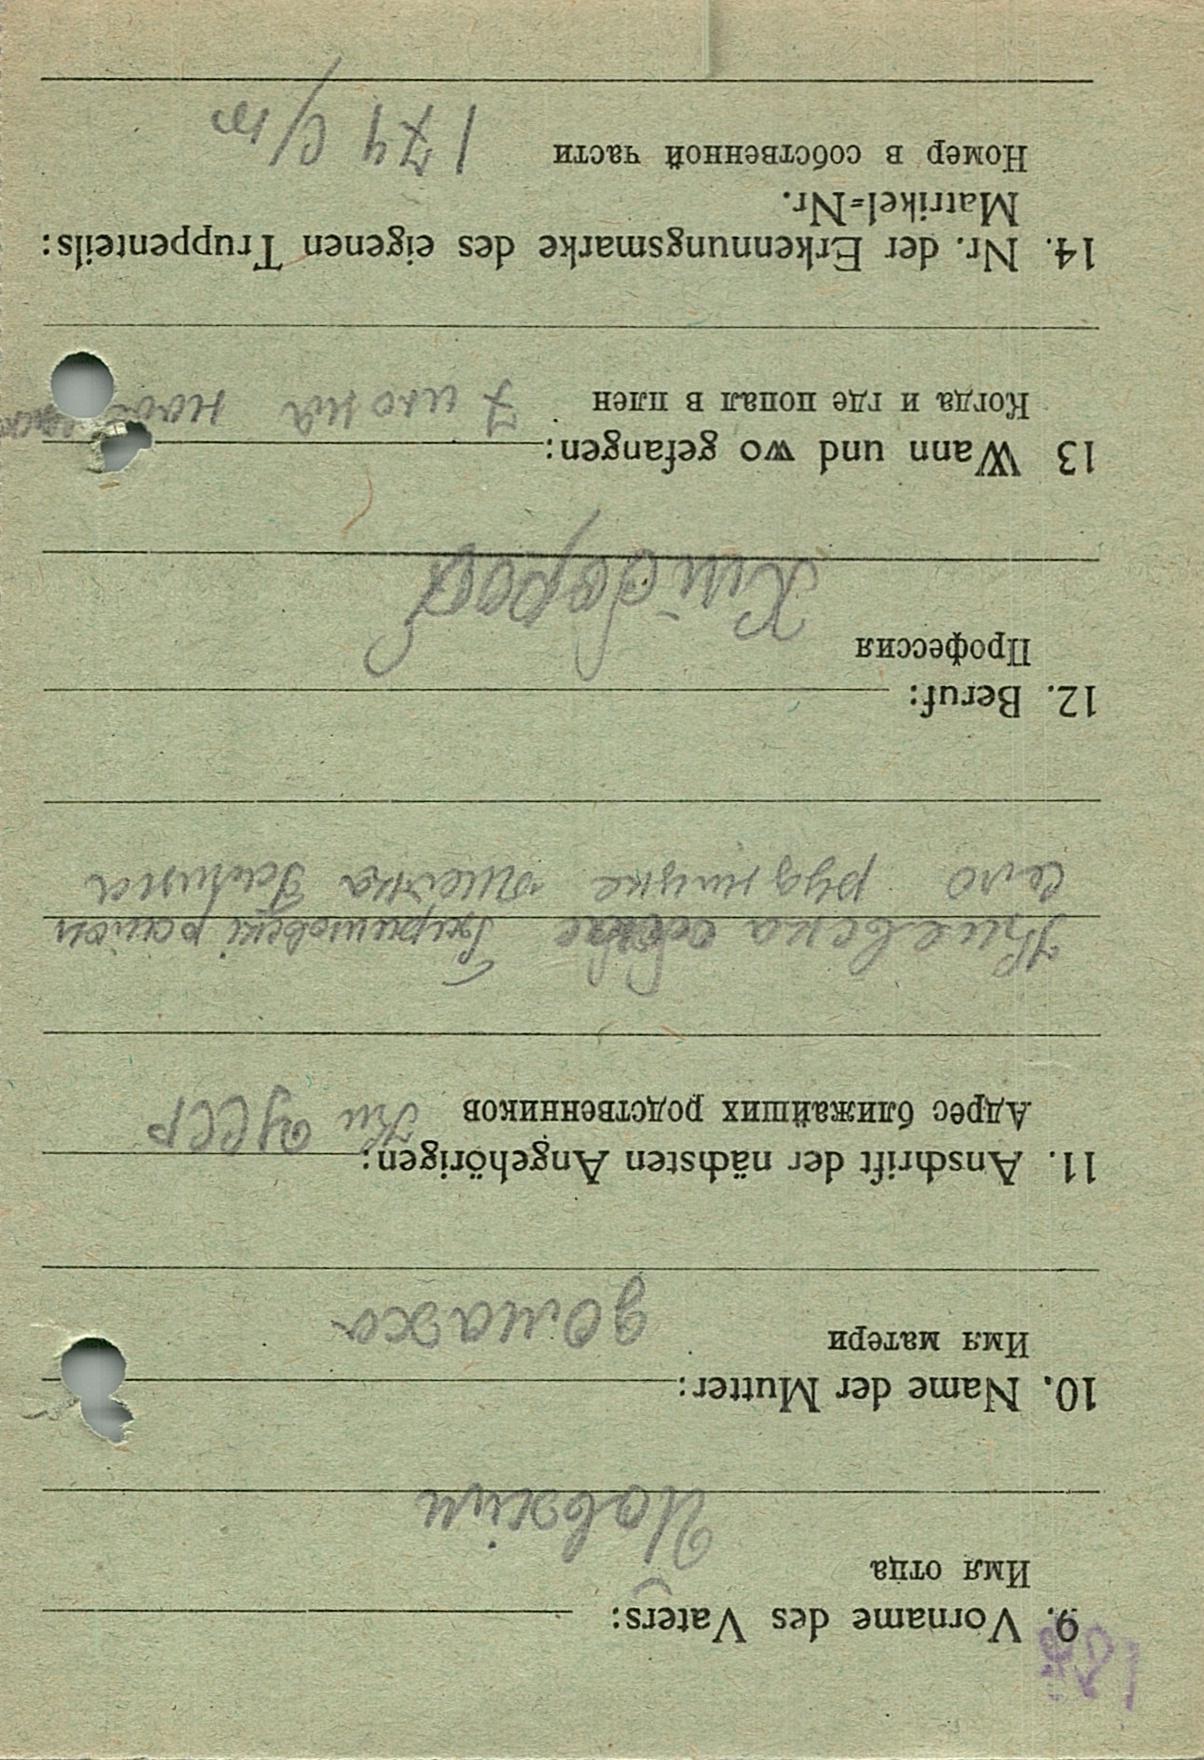 9. Vorname des Vaters:
Имя отца
10. Name der Mutter:
Имя матери домаха
11. Anschrift der nächsten Angehörigen:
Адрес ближайших родственников УССР
район
село
12. Beruf:
Профессия
Хлібороб
13 Wann und wo gefangen:
Когда и где попал в плен 7 июна
14. Nr. der Erkennungsmarke des eigenen Truppenteils:
Matrikel=Nr.
Номер в собственной части 174 с/п